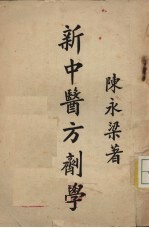 陳永梁著
新中醫方劑學